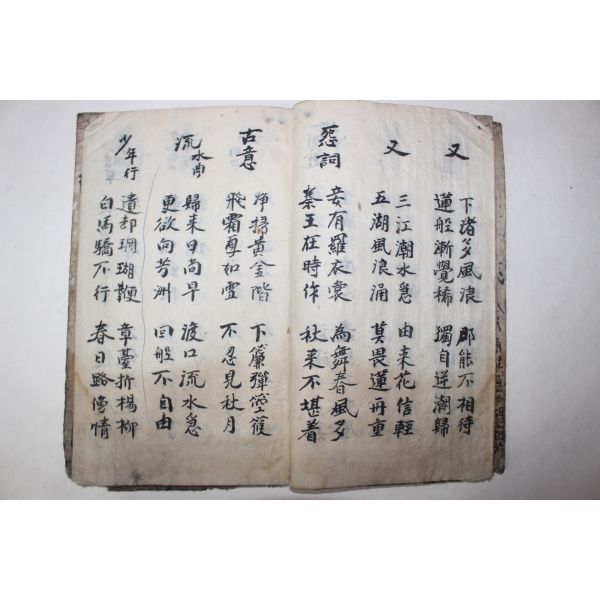 又
下渚多風浪 那能不相待
蓮般漸覺稀 獨自逆潮歸
又
三江潮水急 由来花信輕
五湖風浪涌 莫畏蓮舟重
怨詞
妾有羅衣裳 為舞春風多
秦王在時作 秋来不堪着
古意
淨掃黃金階 下簾彈箜篌
飛霜如雪 不忍見秋月
流水曲
歸来日尚早 渡口流水急
更欲向芳洲 回般不自由
少年行
遺却珊瑚鞭 章臺折楊柳
白馬驕不行 春日路傍情